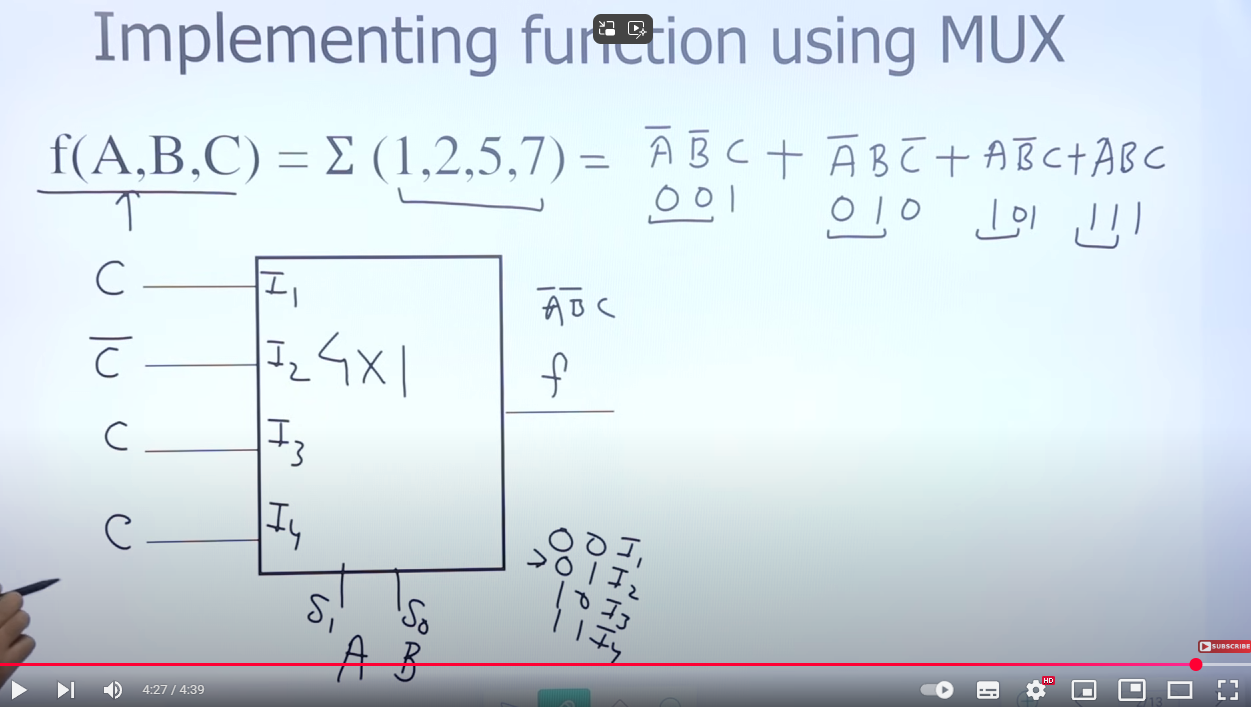 Implementing function using MUX
f(A,B,C) = Σ (1,2,5,7) = A̅ B̅ C + A̅ B C̅ + A B̅ C + A B C
0 0 1 0 1 0 1 0 1 1 1 1
C I₁ A̅ B̅ C
C̅ I₂ 4x1 f
C I₃
C I₄
0 0 I₁
→ 0 1 I₂
1 0 I₃
1 1 I₄
S₁ S₀
A B
SUBSCRIBE
4:27 / 4:39
HD
13